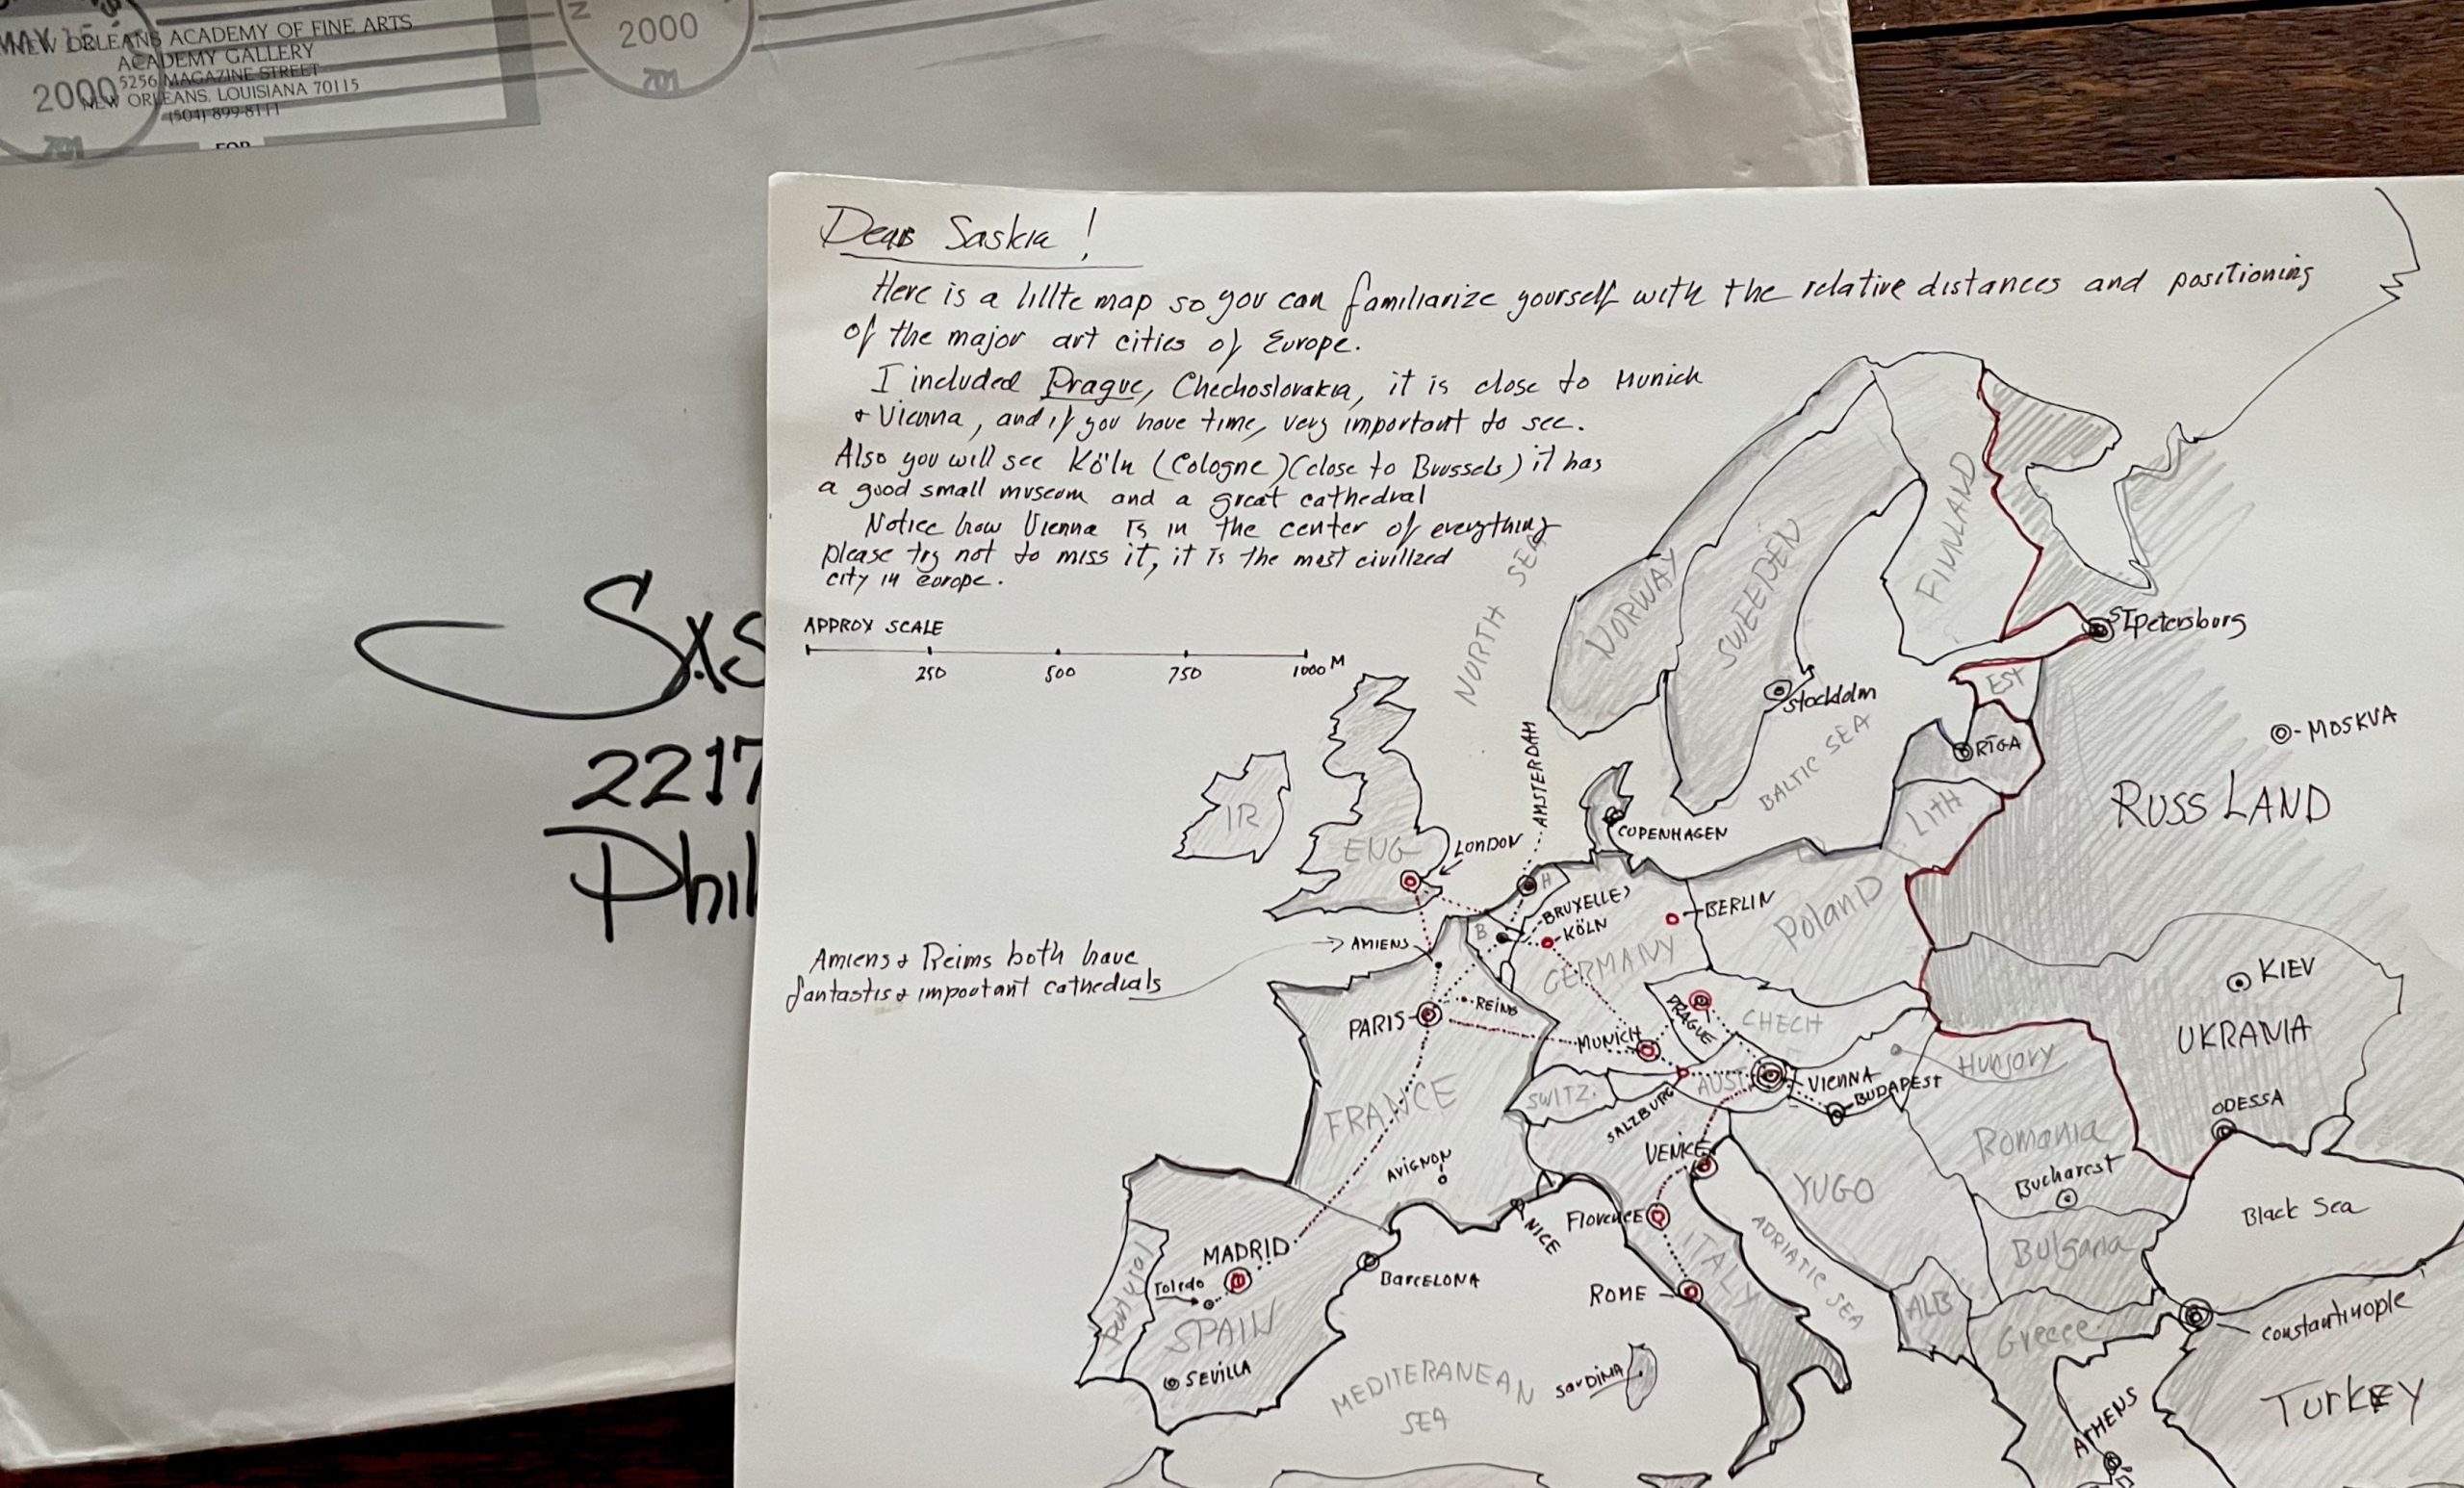 MAY 15
2000
NEW ORLEANS ACADEMY OF FINE ARTS
ACADEMY GALLERY
5256 MAGAZINE STREET
NEW ORLEANS, LOUISIANA 70115
(504) 899-8111
FOR
701
N
2000
701
SxS
2217
Phil
Dear Saskia!
Here is a lillte map so you can familiarize yourself with the relative distances and positioning
of the major art cities of Europe.
I included Prague, Chechoslovakia, it is close to Munich
+ Vienna, and if you have time, very important to see.
Also you will see Köln (Cologne) (close to Brussels) it has
a good small museum and a great cathedral
Notice how Vienna is in the center of everything
please try not to miss it, it is the most civilized
city in europe.
APPROX SCALE
250 500 750 1000 M
NORTH SEA
NORWAY
SWEEDEN
FINLAND
STpetersburg
Stockholm
BALTIC SEA
EST
RIGA
LITH
MOSKVA
RUSSLAND
IR
ENG
LONDON
AMSTERDAM
COPENHAGEN
H
B
BRUXELLES
KÖLN
BERLIN
GERMANY
Poland
Amiens + Reims both have
fantastis + impootant cathedrals
AMIENS
PARIS
REIMS
MUNICH
PRAGUE
CHECH
KIEV
UKRANIA
Hungary
FRANCE
SWITZ.
AUST
VIENNA
BUDAPEST
SALZBURG
ODESSA
VENICE
AVIGNON
YUGO
Romania
Bucharest
Black Sea
NICE
Florence
ITALY
ADRIATIC SEA
Bulgaria
MADRID
Toledo
Portugal
SPAIN
BARCELONA
ROME
ALB
Greece
Constantinople
SEVILLA
MEDITERANEAN
SEA
SARDINIA
ATHENS
TURKEY